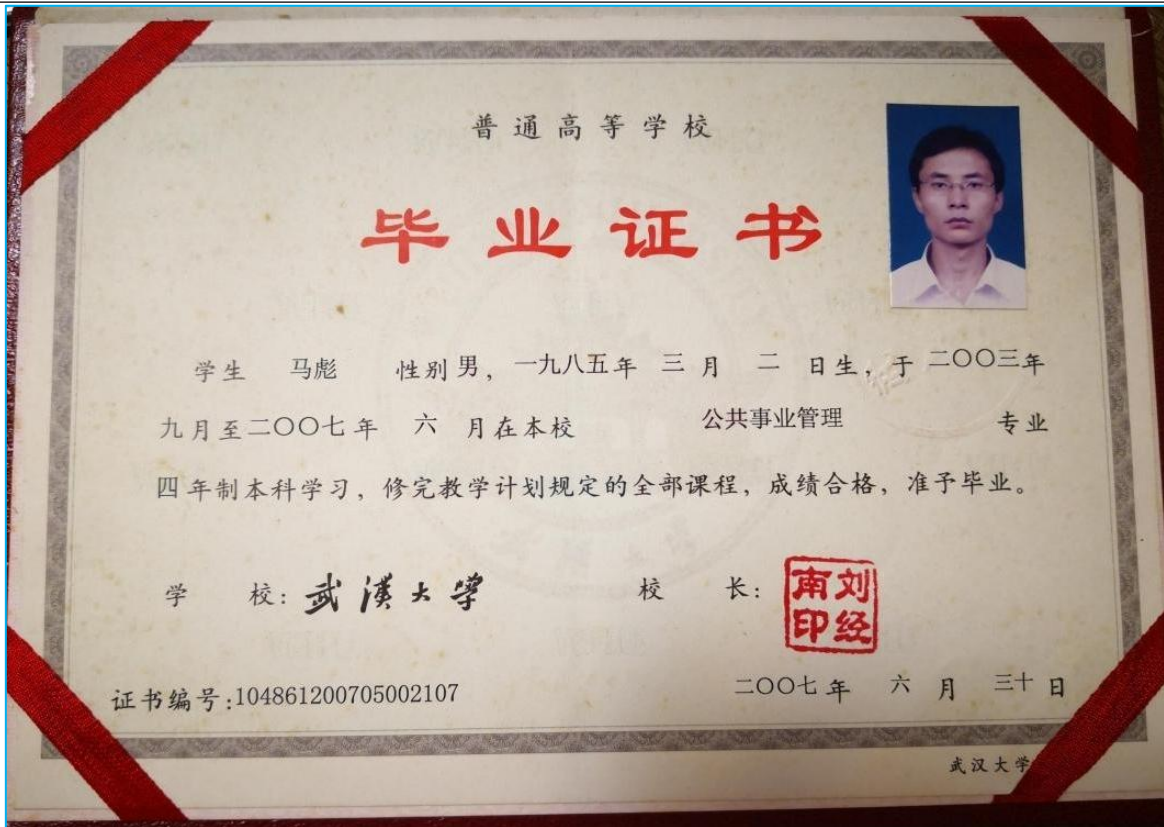 普通高等学校
毕业证书
学生 马彪 性别 男，一九八五年 三 月 二 日生，于 二〇〇三年
九月至二〇〇七年 六 月在本校 公共事业管理 专业
四年制本科学习，修完教学计划规定的全部课程，成绩合格，准予毕业。
学 校：武漢大學 校 长：刘经南印
证书编号：104861200705002107 二〇〇七年 六 月 三十 日
武汉大学